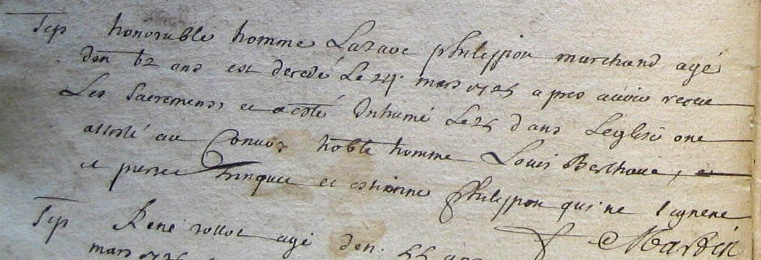 Sep honorable homme Lazare philippon marchand agé
den 62 ans est decedé Le 24 mars apres avoir receue
Les Sacremens, et a esté Inhumé Le 25 dans Leglise one
assisté au Convoy Noble homme Louis Berthaue,
et pierre et estienne philippon qui ne signene
Martin
Sep René agé den 55 ans
mars